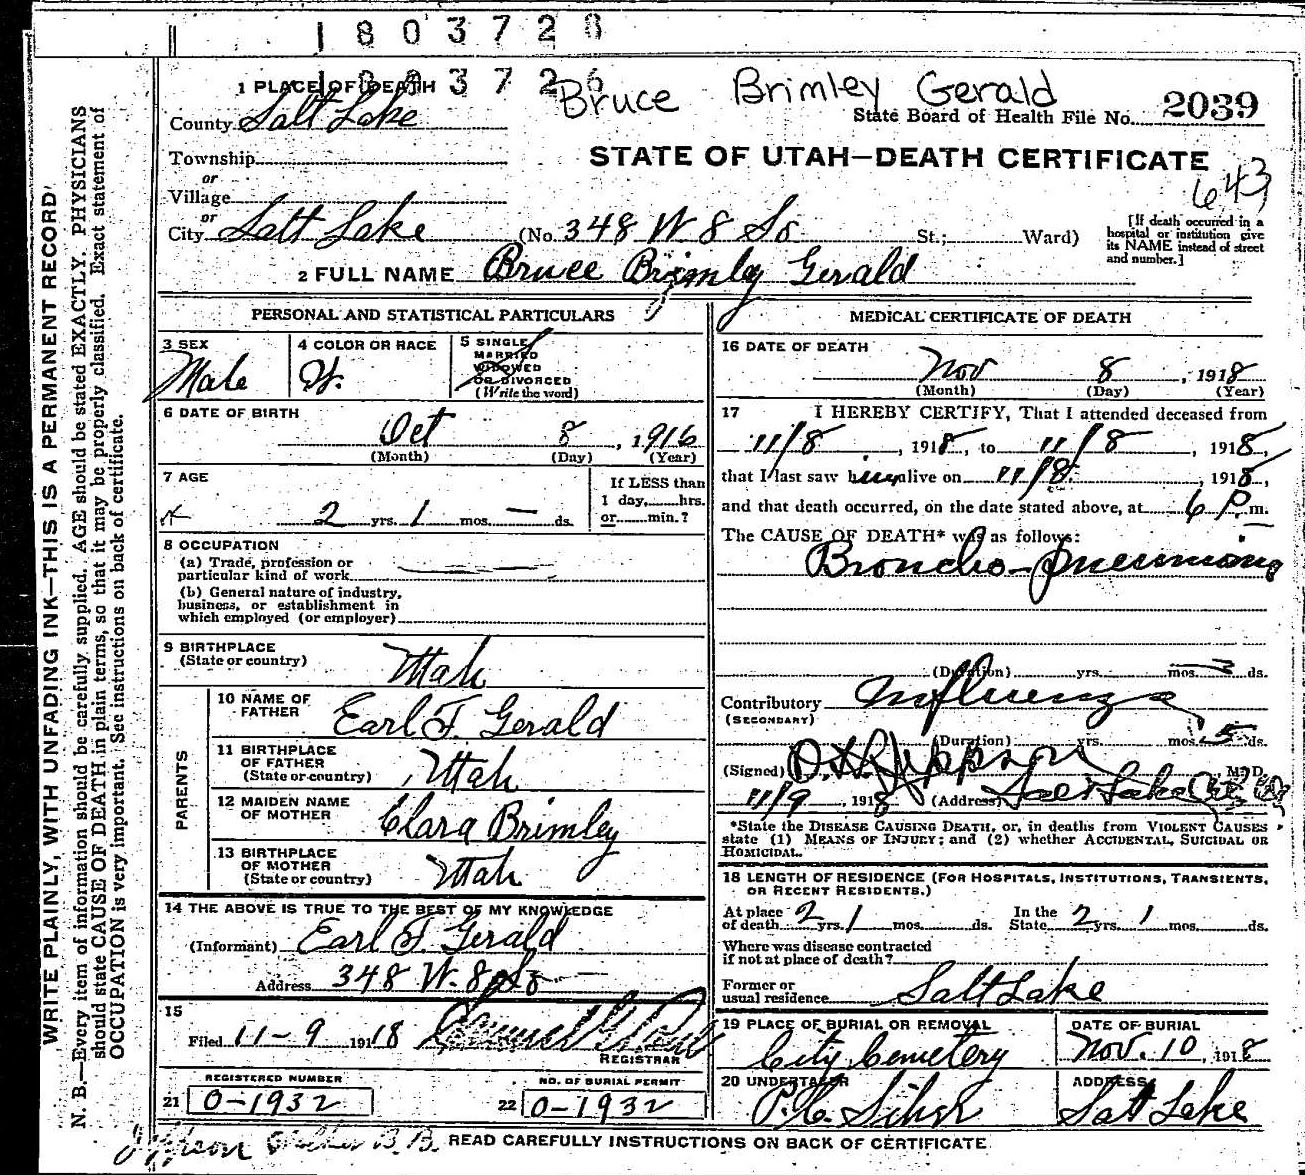 1803728
1 PLACE OF DEATH
Bruce Brimley Gerald
County Salt Lake
State Board of Health File No. 2039
Township
or
STATE OF UTAH—DEATH CERTIFICATE
643
Village
or
City Salt Lake (No. 348 W 8 So St.; Ward)
[If death occurred in a
hospital or institution give
its NAME instead of street
and number.]
2 FULL NAME Bruce Brimley Gerald
PERSONAL AND STATISTICAL PARTICULARS
3 SEX
Male
4 COLOR OR RACE
W.
5 SINGLE
MARRIED
WIDOWED
OR DIVORCED
(Write the word)
S
6 DATE OF BIRTH
Oct 8, 1916
(Month) (Day) (Year)
7 AGE
2 yrs. 1 mos. — ds.
If LESS than
1 day, hrs.
or min.?
8 OCCUPATION
(a) Trade, profession or
particular kind of work
(b) General nature of industry,
business, or establishment in
which employed (or employer)
9 BIRTHPLACE
(State or country)
Utah
PARENTS
10 NAME OF
FATHER
Earl F. Gerald
11 BIRTHPLACE
OF FATHER
(State or country)
Utah
12 MAIDEN NAME
OF MOTHER
Clara Brimley
13 BIRTHPLACE
OF MOTHER
(State or country)
Utah
14 THE ABOVE IS TRUE TO THE BEST OF MY KNOWLEDGE
(Informant) Earl F. Gerald
Address 348 W. 8 So
15
Filed 11-9 1918
REGISTRAR
REGISTERED NUMBER
21 0-1932
NO. OF BURIAL PERMIT
22 0-1932
MEDICAL CERTIFICATE OF DEATH
16 DATE OF DEATH
Nov 8, 1918
(Month) (Day) (Year)
17 I HEREBY CERTIFY, That I attended deceased from
11/8, 1918, to 11/8, 1918,
that I last saw him alive on 11/8, 1918,
and that death occurred, on the date stated above, at 6 P. m.
The CAUSE OF DEATH* was as follows:
Broncho-pneumonia
(Duration) yrs. mos. 3 ds.
Contributory Influenza
(SECONDARY)
(Duration) yrs. mos. 5 ds.
(Signed) Jeppson M. D.
11/9, 1918 (Address) Salt Lake
*State the DISEASE CAUSING DEATH, or, in deaths from VIOLENT CAUSES
state (1) MEANS OF INJURY; and (2) whether ACCIDENTAL, SUICIDAL OR
HOMICIDAL.
18 LENGTH OF RESIDENCE (FOR HOSPITALS, INSTITUTIONS, TRANSIENTS,
OR RECENT RESIDENTS.)
At place
of death 2 yrs. 1 mos. ds.
In the
State 2 yrs. 1 mos. ds.
Where was disease contracted
if not at place of death?
Former or
usual residence Salt Lake
19 PLACE OF BURIAL OR REMOVAL
City Cemetery
DATE OF BURIAL
Nov. 10, 1918
20 UNDERTAKER
ADDRESS
Salt Lake
READ CAREFULLY INSTRUCTIONS ON BACK OF CERTIFICATE
WRITE PLAINLY, WITH UNFADING INK—THIS IS A PERMANENT RECORD
N. B.—Every item of information should be carefully supplied. AGE should be stated EXACTLY. PHYSICIANS
should state CAUSE OF DEATH in plain terms, so that it may be properly classified. Exact statement of
OCCUPATION is very important. See instructions on back of certificate.